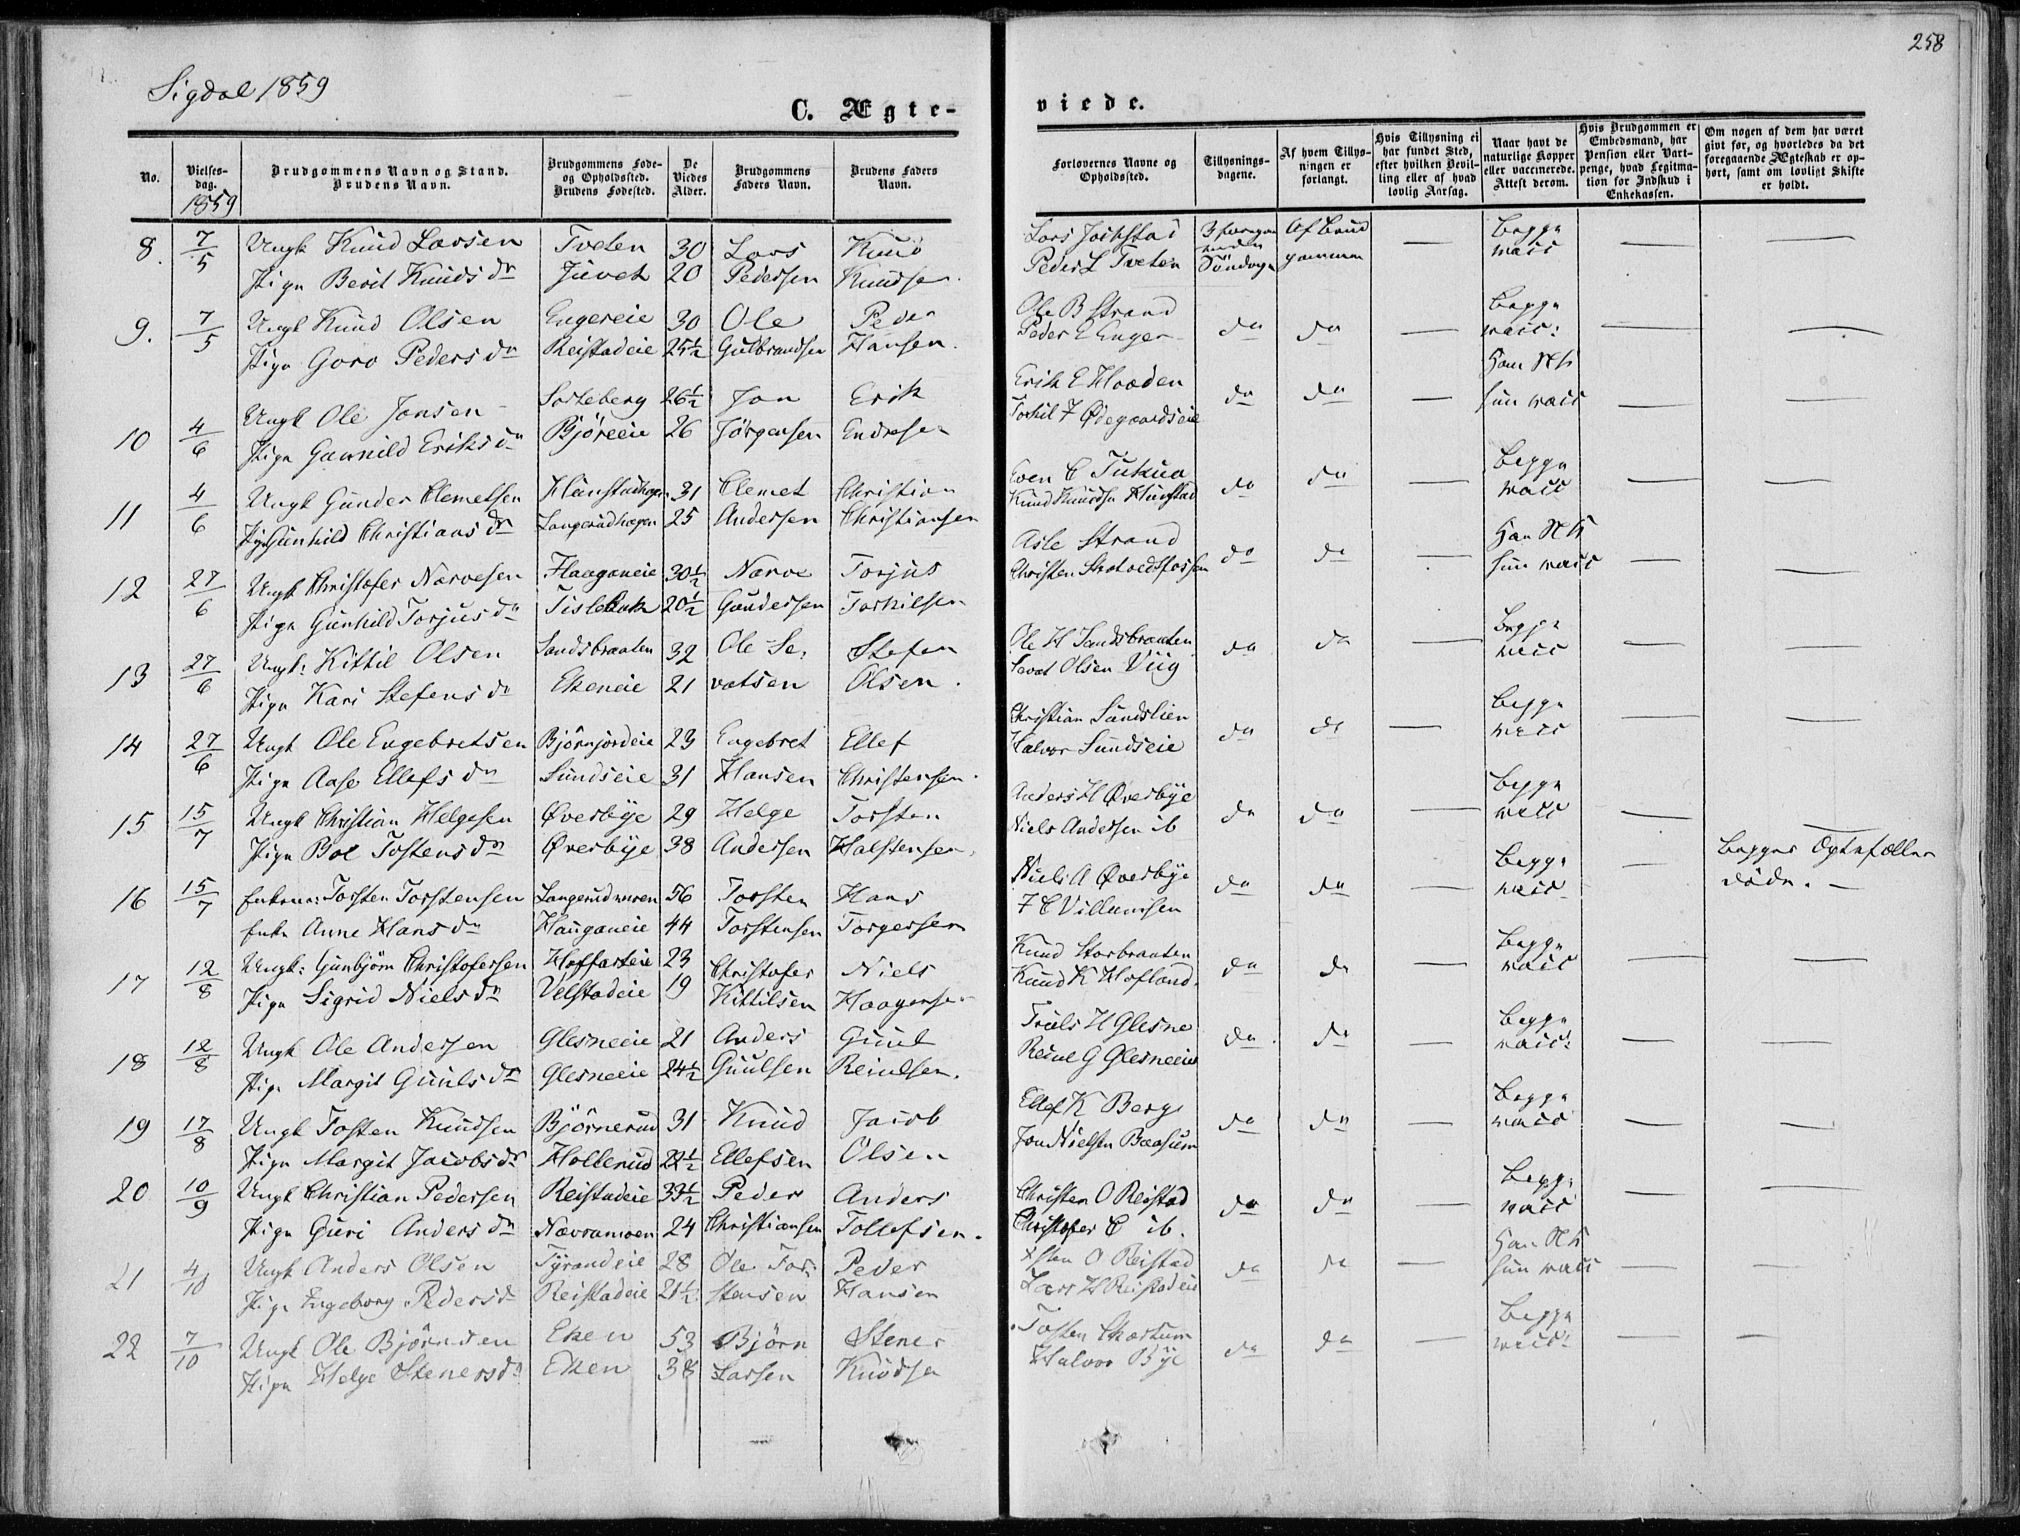 258
Sigdal 1859
C. Ægte-
viede.
No.
Vielses-
dag.
1859
Brudgommens Navn og Stand.
Brudens Navn.
Brudgommens Føde-
og Opholdssted.
Brudens Fødested.
De
Viedes
Alder.
Brudgommens
Faders Navn.
Brudens Faders
Navn.
Forlovernes Navne og
Opholdssted.
Tillysnings-
dagene.
Af hvem Tillys-
ningen er
forlangt.
Hvis Tillysning ei
har fundet Sted,
efter hvilken Bevil-
ling eller af hvad
lovlig Aarsag.
Naar havt de
naturlige Kopper
eller vaccinerede.
Attest derom.
Hvis Brudgommen er
Embedsmand, har
Pension eller Vart-
penge, hvad Legitima-
tion for Indskud i
Enkekassen.
Om nogen af dem har været
givt før, og hvorledes da det
foregaaende Ægteskab er op-
hørt, samt om lovligt Skifte
er holdt.
8. 7/5 Ungk Knud Larsen Tveten 30 Lars Knud
Pige Berit Knuds dr Juvet 20 Pedersen Knudsen
Peder L Tveten Søndage
Begge
vacc
9. 7/5 Ungk Knud Olsen Engereie 30 Ole Peder
Pige Goro Peders dr Reistadeie 25½ Gulbrandsen Hansen.
Ole B Strand
Peder E Enger do do
Begge
vacc:
10 4/6 Ungk Ole Jonsen Sorteberg 26½ Jon Erik
Pige Gunnild Eriks dr Bjøreeie 26 Jørgensen Endresen
Erik E Haaden do do
Torkil T Ødegaardseie
Han N K
hun vacc
11 4/6 Ungk Gunder Clemetsen 31 Clemet Christian
Gunhild Christians dr Langerudhagen 25 Andersen Christiansen
Even C
Knud Knudsen Hunstad do do
Begge
vacc
12 27/6 Ungk Christofer Narvesen Haaganeie 30½ Narve Torjus
Pige Gunhild Torjus dr 20½ Gundersen Torkilsen
Asle Strand do do
Christen
Han N K
hun vacc
13 27/6 Ungk: Kittil Olsen Sandsbraaten 32 Ole Se, Stefen
Pige Kari Stefens dr Ekeneie 21 vatsen Olsen.
Ole H Sandsbraaten do do
Sevat Olsen Viig
Begge
vacc
14 27/6 Ungk Ole Engebretsen Bjørnjordeie 23 Engebret Ellef
Pige Aase Ellefs dr Sundseie 31 Hansen Christensen.
Christian Sundslien do do
Halvor Sundseie
Begge
vacc
15 15/7 Ungk Christian Helgesen Øverbye 29 Helge Torsten
Pige Boel Tostens dr Øverbye 38 Andersen Halstensen.
Anders H Øverbye do do
Niels Andersen ib
Begge
vacc
16 15/7 Enkem: Torsten Torstensen 56 Torsten Hans
Enke Anne Hans dr Hauganeie 44 Torstensen Torgersen
Niels A Øverbye do do
T C Villumsen
Begge
vacc
Begges Ægtefæller
døde. —
17 12/8 Ungk: Gunbjørn Christofersen Hoffarteie 23 Christofer Niels
Pige Sigrid Niels dr Velstadeie 19 Kittilsen Haagensen
Knud Storbraaten do do
Knud K Hofland.
Begge
vacc
18 12/8 Ungk Ole Andersen Glesneeie 21 Anders Guul
Pige Margit Guuls dr Glesneeie 24½ Guulsen Reiulsen.
Truls H Glesne do do
Reiul G Glesneeie
Begge
vacc:
19 17/8 Ungk Tosten Knudsen Bjørnerud 31 Knud Jacob
Pige Margit Jacobs dr Hollerud 22½ Ellefsen Olsen
Ellef K Berg do do
Jon Nielsen Baasum
Begge
vacc
20 10/9 Ungk Christian Pedersen Reistadeie 33½ Peder Anders
Pige Guri Anders dr Nævramoen 24 Christiansen Tollefsen.
Christen O Reistad do do
Christofer C ib.
Begge
vacc
21 4/10 Ungk Anders Olsen Tyrandeie 28 Ole Tor, Peder
Pige Ingeborg Peders dr Reistadeie 21½ stensen Hansen
O Reistad do do
Lars H Reistadeie
Han N K
hun vacc
22 7/10 Ungk Ole Bjørnsen Eken 53 Bjørn Stener
Pige Helge Steners dr Eken 38 Larsen Knudsen
Tosten Skartum do do
Halvor Bye
Begge
vacc: